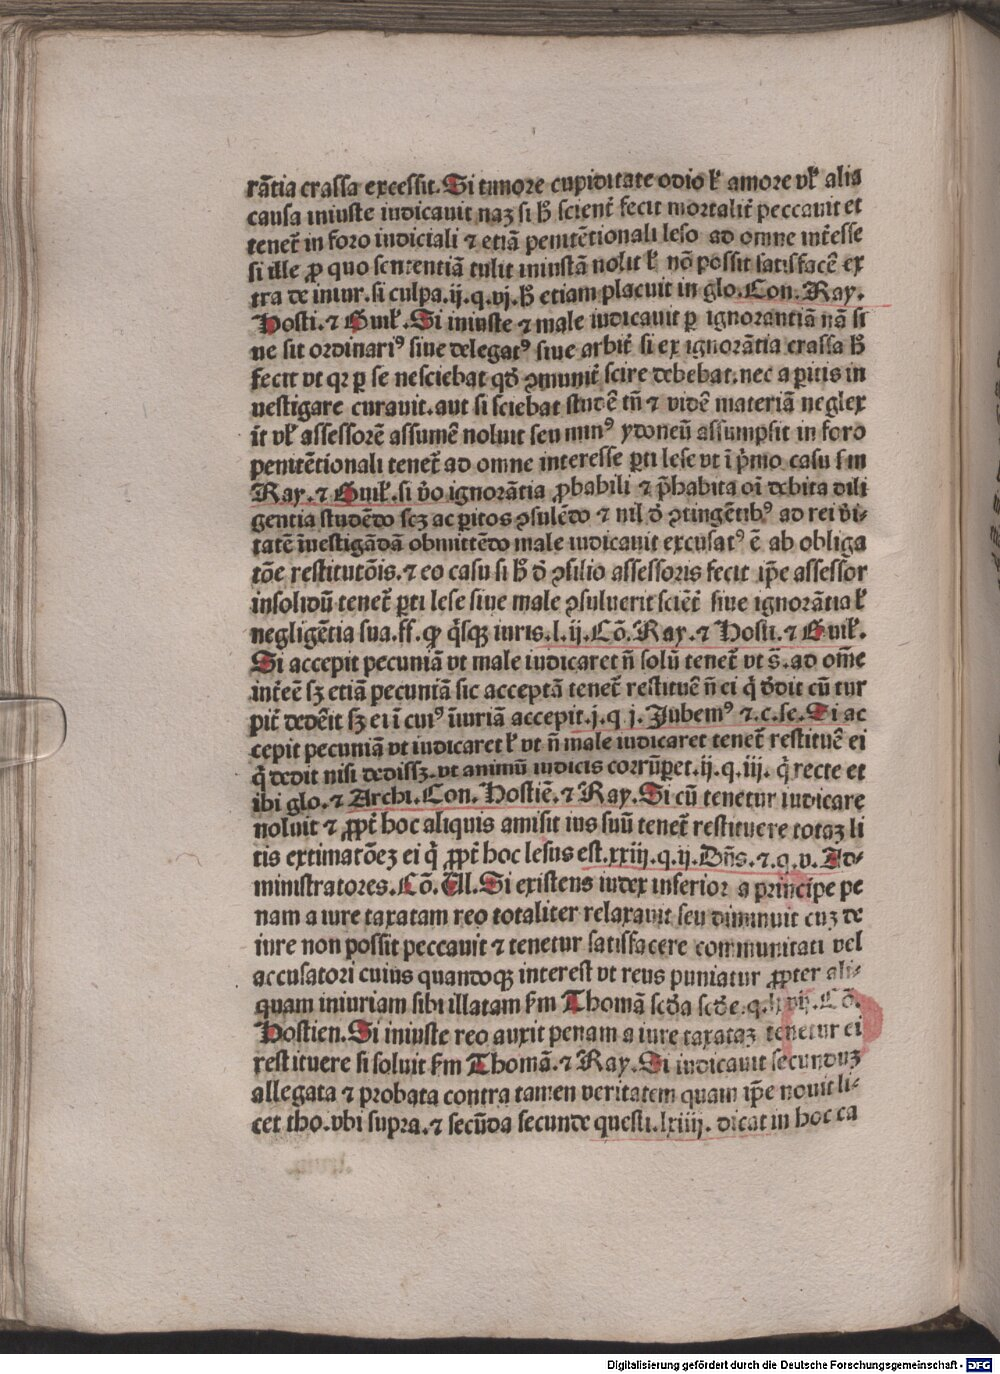 rãtia crassa excessit. Si timore cupiditate odio ł amore vł alia
causa iniuste iudicauit naʒ si ħ scienẽ fecit mortalit̃ peccauit et
tenet̃ in foro iudiciali ⁊ etiã penitẽtionali leso ad omne int̃esse
si ille ꝓ quo sententiã tulit iniustã nolit ł nõ possit satisfacẽ ex
tra de iniur. si culpa. ij. q. vj. ħ etiam placuit in glo. Con. Ray.
Hosti. ⁊ Guił. Si iniuste ⁊ male iudicauit ꝑ ignorantiã nã si
ue sit ordinariꝰ siue delegatꝰ siue arbit̃ si ex ignorãtia crassa ħ
fecit vt qꝛ ꝑ se nesciebat qð ꝯmunit̃ scire debebat. nec a ꝑitis in
uestigare curauit. aut si sciebat studẽ tñ ⁊ vidẽ materiã neglex
it̃ vł assessorẽ assumẽ noluit seu minꝰ ydoneũ assumpsit in foro
penitẽtionali tenet̃ ad omne interesse ꝑti lese vt ĩ p̃mo casu ẜm
Ray. ⁊ Guił. si ṽo ignorãtia ꝓbabili ⁊ p̃habita oĩ debita dili
gentia studẽdo scʒ ac ꝑitos ꝯsulẽdo ⁊ nil d̃ ꝯtingẽtibꝰ ad rei ṽi-
tatẽ ĩuestigãdã obmittẽdo male iudicauit excusatꝰ ẽ ab obliga
tõe restitutõis. ⁊ eo casu si ħ d̃ ꝯsilio assessoris fecit ip̃e assessor
insolidũ tenet̃ ꝑti lese siue male ꝯsuluerit sciẽt̃ siue ignorãtia ł
negligẽtia sua. ff. ꝙ q̃sqʒ iuris. l. ij. Cõ. Ray. ⁊ Hosti. ⁊ Guił.
Si accepit pecuniã vt male iudicaret ñ solũ tenet̃ vt s̃. ad om̃e
int̃eẽ sʒ etiã pecuniã sic acceptã tenet̃ restituẽ ñ ei q̃ d̃dit cũ tur
pit̃ dedẽit sʒ ei ĩ cuiꝰ ĩiuriã accepit. j. q j. Jubemꝰ ⁊. c. se. Si ac
cepit pecuniã vt iudicaret ł vt ñ male iudicaret tenet̃ restituẽ ei
q̃ dedit nisi dedissʒ. vt animũ iudicis corrũꝑet. ij. q. iij. q̃ recte et
ibi glo. ⁊ Archi. Con. Hostiẽ. ⁊ Ray. Si cũ tenetur iudicare
noluit ⁊ ꝓpt̃ hoc aliquis amisit ius suũ tenet̃ restituere totaʒ li
tis extimatõeʒ ei q̃ ꝓpt̃ hoc lesus est. xxiij. q. ij. Dñs. ⁊. q. v. Ad-
ministratores. Cõ. Ul. Si existens iudex inferior a principe pe
nam a iure taxatam reo totaliter relaxauit seu diminuit cuʒ de
iure non possit peccauit ⁊ tenetur satisfacere communitati vel
accusatori cuius quandoqʒ interest vt reus puniatur ꝓpter ali-
quam iniuriam sibi illatam ẜm Thomã sc̃da sc̃de. q. lxvij. Cõ.
Hostien. Si iniuste reo auxit penam a iure taxataʒ tenetur ei
restituere si soluit ẜm Thomã. ⁊ Ray. Si iudicauit secunduʒ
allegata ⁊ probata contra tamen veritatem quam ip̃e nouit li-
cet tho. vbi supra. ⁊ secũda secunde questi. lxiiij. dicat in hoc ca
Digitalisierung gefördert durch die Deutsche Forschungsgemeinschaft - DFG